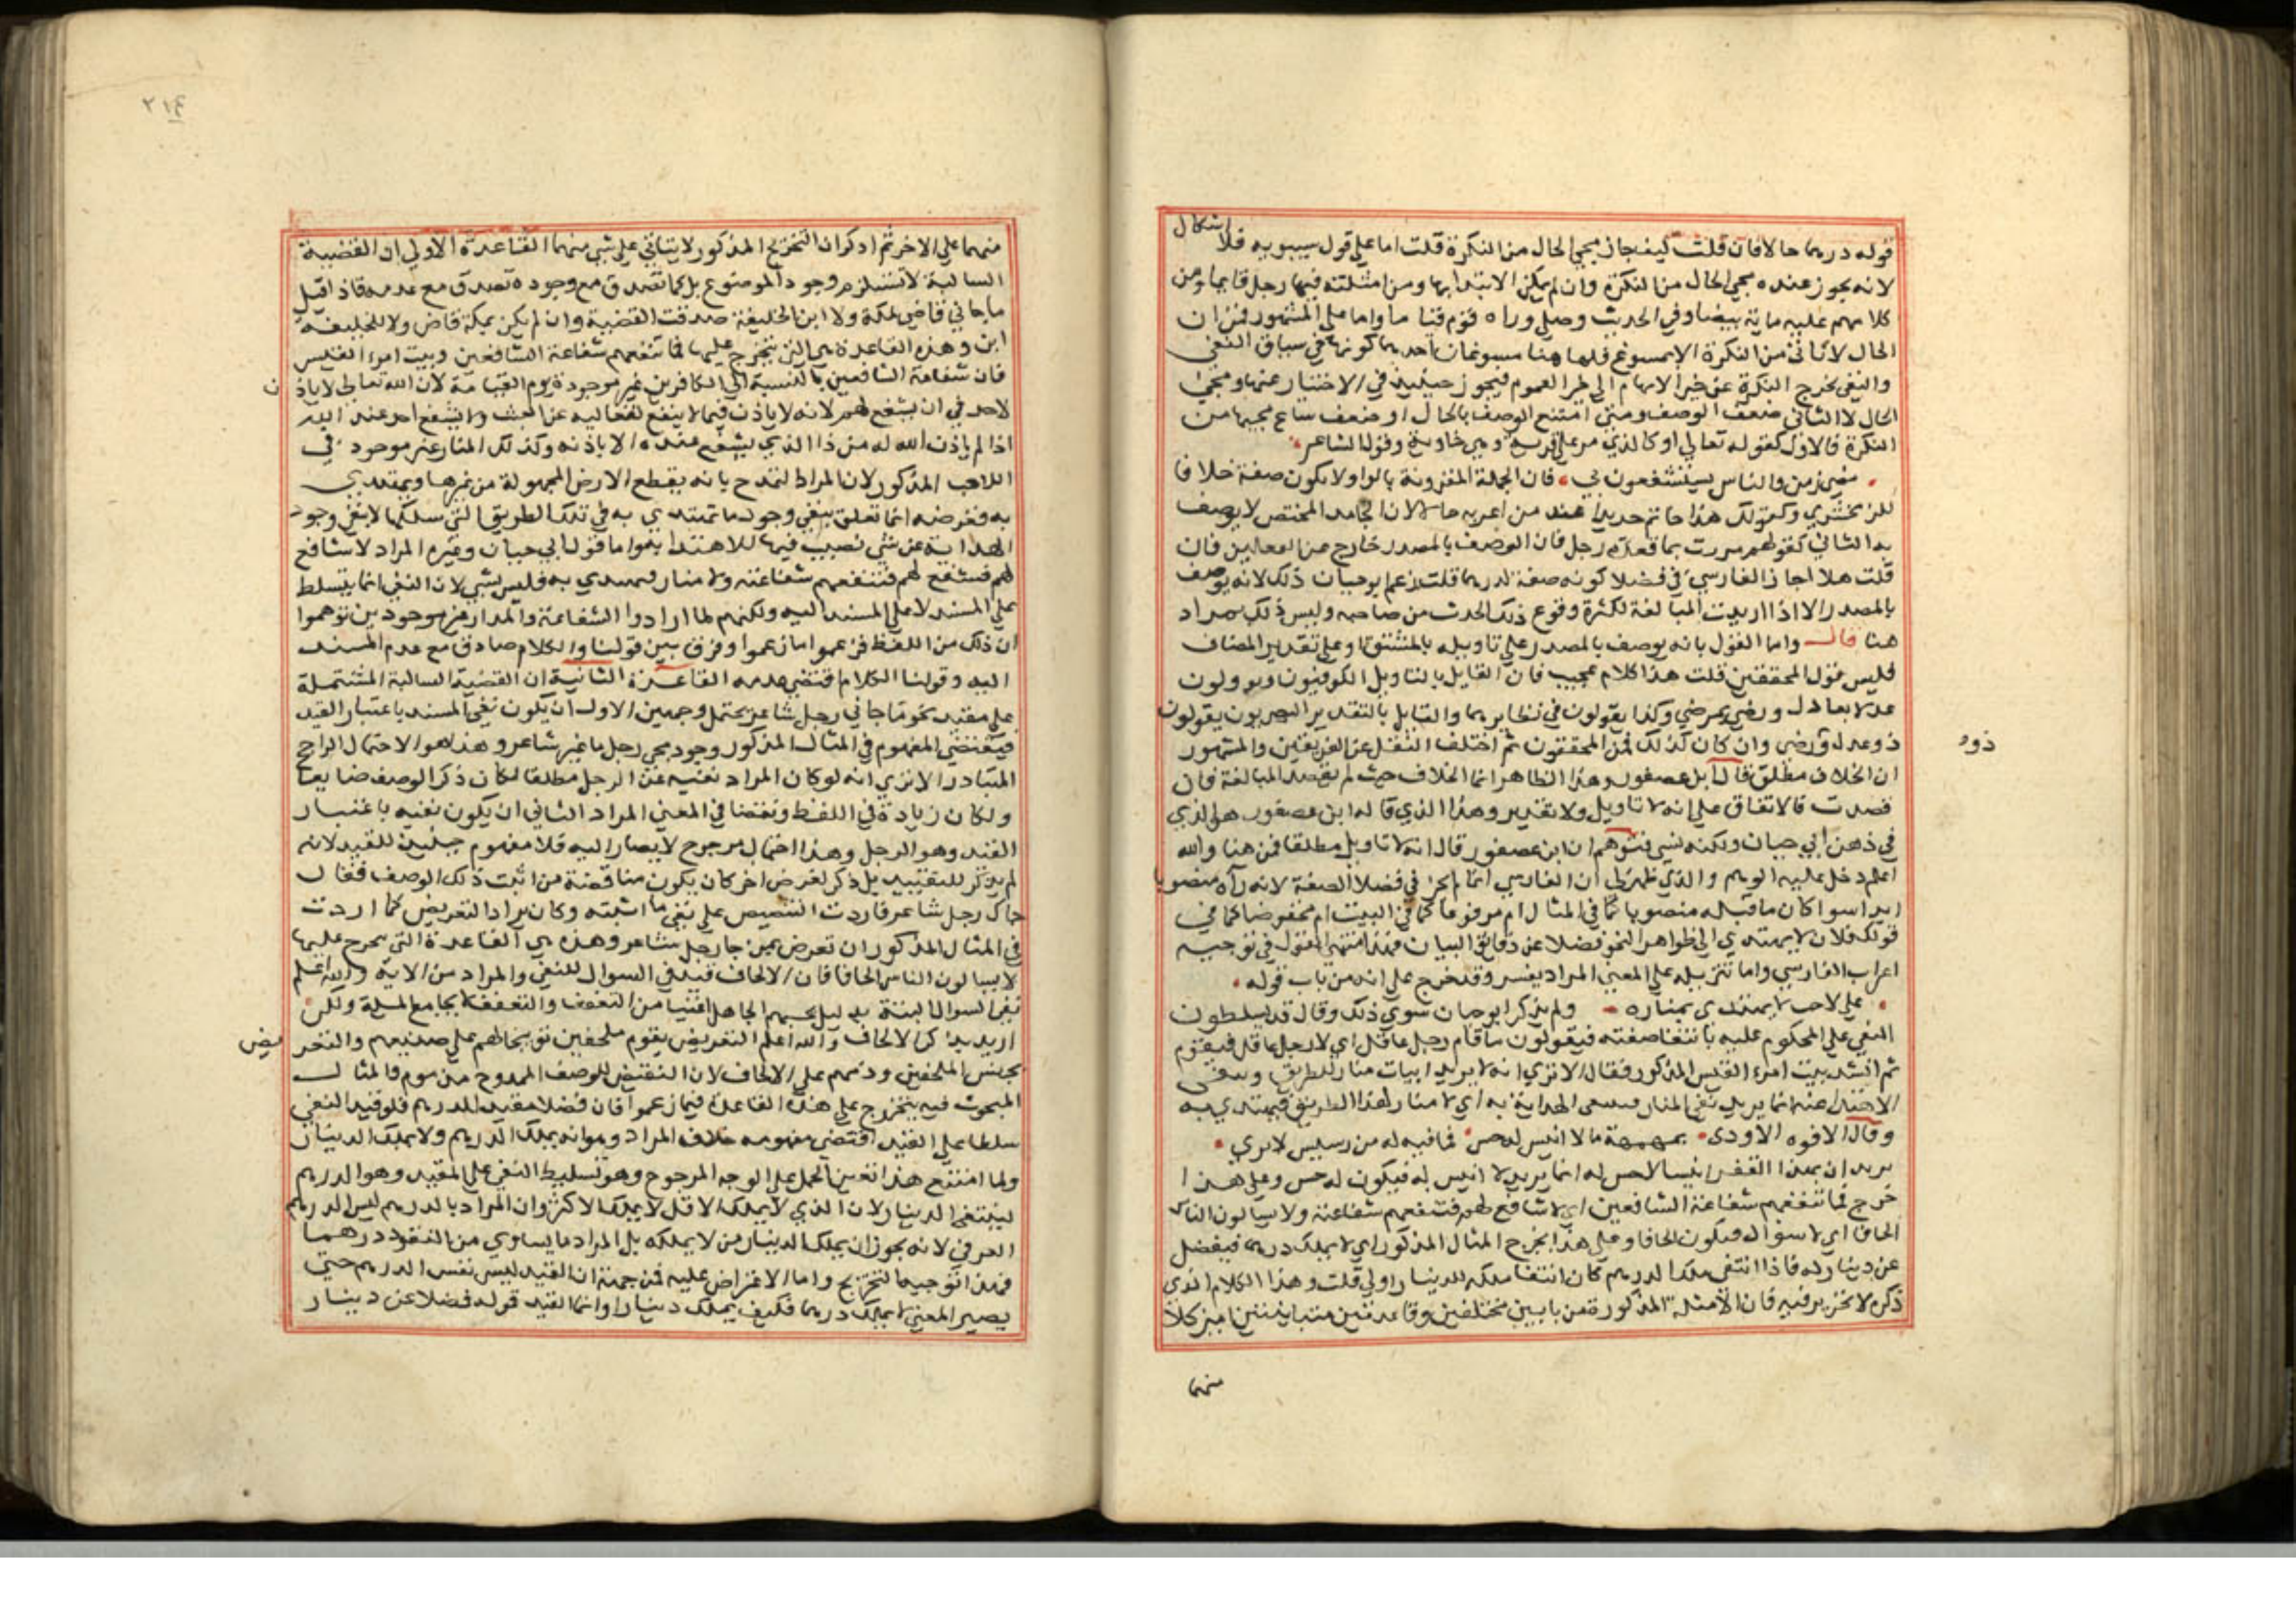 قوله درهما حالا فان قلت كيف جاز مجي الحال من النكرة قلت اما على قول سيبويه فلا اشكال
لانه يجوز عنده مجي الحال من النكرة وان لم يمكن الابتدا بها ومن امثلته فيها رجل قايما ومن
كلامهم عليه ماية بيضا وفي الحديث وصلى وراه قوم قياما واما على المشهور فمن ان
الحال لا تاتي من النكرة الا بمسوغ فلها هنا مسوغان احدهما كونها في سياق النفي
والنفي يخرج النكرة عن خبر الابهام الى خبر العموم فيجوز حينيذ في الاختيار عنها ومجي
الحال لا الثاني ضعف الوصف ومتى امتنع الوصف بالحال او ضعف ساغ مجيها من
النكرة فالاول كقوله تعالى او كالذي مر على قرية وهي خاوية وقول الشاعر
مضى زمن والناس يستشفعون بي فان الجملة المقرونة بالواو لا تكون صفة خلافا
للزمخشري وكقولك هذا خاتم حديدا عند من اعربه حالا لان الجامد المختص لا يوصف
به الثاني كقولهم مررت بما قعدة رجل فان الوصف بالمصدر خارج عن القياس فان
قلت هلا اجاز الفارسي في فضلا كونه صفة لدرهما قلت زعم ابو حيان ذلك لانه يوصف
بالمصدر الا اذا اريدت المبالغة لكثرة وقوع ذلك الحدث من صاحبه وليس ذلك بمراد
هنا قال واما القول بانه يوصف بالمصدر على تاويله بالمشتق او على تقدير المضاف
فليس قول المحققين قلت هذا كلام عجيب فان القايل بالتاويل الكوفيون ويوولون
عدلا بعادل ورضى بمرضي وكذا يقولون في نظايرهما والقايل بالتقدير البصريون يقولون
ذو عدل ورضى وان كان كذلك فمن المحققون ثم اختلف النقل عن الفريقين والمشهور
ذو
ان الخلاف مطلق قال ابن عصفور وهذا الظاهر انما الخلاف حيث لم يقصد المبالغة فان
قصدت فالاتفاق على انه لا تاويل ولا تقدير وهذا الذي قاله ابن عصفور هو الذي
في ذهن ابي حيان ولكنه نسي فتوهم ان ابن عصفور قال انه لا تاويل مطلقا فمن هنا والله
اعلم دخل عليه الوهم والذي ظهر لي ان الفارسي انما لم يجز في فضلا الصفة لانه رآه منصوبا
ابدا سوا كان ما قبله منصوبا كما في المثال ام مرفوعا كما في البيت ام مخفوضا كما في
قولك فلان لا يهتدي الى ظواهر النحو فضلا عن دقائق البيان فهذا منتهى القول في توجيه
اعراب الفارسي واما تنزيله على المعنى المراد يفسر وقد خرج على انه من باب قوله
على لاحب لا يهتدى بمناره ولم يذكر ابو حيان سوى ذلك وقال قد يسلطون
النفي على المحكوم عليه بانتفا صفته فيقولون ما قام رجل عاقل اي لا رجل عاقل فيقوم
ثم انشد بيت امرء القيس المذكور فقال الا ترى انه لا يريد اثبات منار للطريق وينفي
الاهتدا عنه انما يريد نفي المنار فينتفي الهداية به اي لا منار لهذا الطريق فيهتدي به
وقال الافوه الاودي بمهمهة ما لا انيس لحس فما فيه له من رسيس لا يرى
يريد ان بهذا القفر انيسا لا حس له انما يريد لا انيس له فيكون له حس وعلى هذا
خرج فما تنفعهم شفاعة الشافعين اي لا شافع لهم فتنفعهم شفاعته ولا يسالون الناس
الحافا اي لا سوال فيكون الحافا وعلى هذا يخرج المثال المذكور اي لا يملك درهما فيفضل
عن دينار له فاذا انتفى ملك الدرهم كان انتفا ملكه للدينار اولى قلت وهذا الكلام الذي
ذكره لا تحرير فيه فان الامثلة المذكورة من بابين مختلفين وقاعدتين متباينتين اميز كلا
منهما
٢١٤
منهما على الاخر ثم اذكر ان التخريج المذكور لا يتاتى على شي منهما القاعدة الاولى ان القضية
السالبة لا تستلزم وجود الموضوع بل كما تصدق مع وجوده تصدق مع عدمه فاذا قيل
ما جاني قاضي مكة ولا ابن الخليفة صدقت القضية وان لم يكن بمكة قاض ولا للخليفة
ابن وهذه القاعدة هي التي يتخرج عليها فما تنفعهم شفاعة الشافعين وبيت امرء القيس
فان شفاعة الشافعين بالنسبة الى الكافرين غير موجودة يوم القيامة لان الله تعالى لا ياذن
لاحد في ان يشفع لهم لانه لا ياذن فيما لا ينفع لتعاليه عن العبث ولا يشفع احد عند الله
اذا لم ياذن الله له من ذا الذي يشفع عنده الا باذنه وكذلك المنار غير موجود في
اللاحب المذكور لان المراد التمدح بانه يقطع الارض المجهولة من غير هاد يهتدي
به فغرضه انما تعلق بنفي وجود ما يهتدي به في تلك الطريق التي سلكها لا بنفي وجود
الهداية عن شي نصيب فيها للاهتدا به واما قول ابي حيان وغيره المراد لا شافع
لهم فيشفع لهم فتنفعهم شفاعته ولا منار فيهتدي به فليس بشي لان النفي انما يتسلط
على المسند لا على المسند اليه ولكنهم لما ارادوا الشفاعة والمنار غير موجودين توهموا
ان ذلك من اللفظ فزعموا ما زعموا وفرق بين قولنا والكلام صادق مع عدم المسند
اليه وقولنا الكلام اقتضى عدمه القاعدة الثانية ان القضية السالبة المشتملة
على مقيد نحو ما جاني رجل شاعر يحتمل وجهين الاول ان يكون نفي المسند باعتبار القيد
فيقتضي المفهوم في المثال المذكور وجود مجي رجل ما غير شاعر وهذا هو الاحتمال الراجح
المتبادر الا ترى انه لو كان المراد نفيه عن الرجل مطلقا لكان ذكر الوصف ضايعا
ولكان زيادة في اللفظ ونقصا في المعنى المراد الثاني ان يكون نفيه باعتبار
المقيد وهو الرجل وهذا احتمال مرجوح لا يصار اليه فلا مفهوم حينيذ للقيد لانه
لم يذكر للتقييد بل ذكر لغرض اخر كان يكون مناقضة من اثبت ذلك الوصف فقال
جاك رجل شاعر فاردت التنصيص على نفي ما اثبته وكان يراد التعريض كما اردت
في المثال المذكور ان تعرض بمن جا رجل شاعر وهذه هي القاعدة التي يخرج عليها
لا يسالون الناس الحافا فان الالحاف قيد في السوال المنفي والمراد من الاية والله اعلم
نفي السوال البتة بدليل يحسبهم الجاهل اغنيا من التعفف والتعفف لا يجامع المسلة ولكن
اريد بذكر الالحاف والله اعلم التعريض بقوم ملحفين توبيخا لهم على صنيعهم والتعريض
بجنس الملحفين وذمهم على الالحاف لان النقيض للوصف الممدوح مذموم فالمثال
المبحوث فيه يتخرج على هذه القاعدة فيما زعموا فان فضلا مقيد للدرهم فلو قيد النفي
سلطا على القيد اقتضى مفهومه خلاف المراد وهو انه يملك الدرهم ولا يملك الدينار
ولما امتنع هذا تعين الحمل على الوجه المرجوح وهو تسليط النفي على المقيد وهو الدرهم
لينتفي الدينار لان الذي لا يملك الاقل لا يملك الاكثر وان المراد بالدرهم ليس الدرهم
العرفي لانه يجوز ان يملك الدينار من لا يملكه بل المراد ما يساوي من النقود درهما
فهذا توجيه التخريج واما الاعتراض عليه فمن جهة ان القيد ليس نفس الدرهم حتى
يصير المعنى لا يملك درهما فكيف يملك دينارا وانما القيد قوله فضلا عن دينار